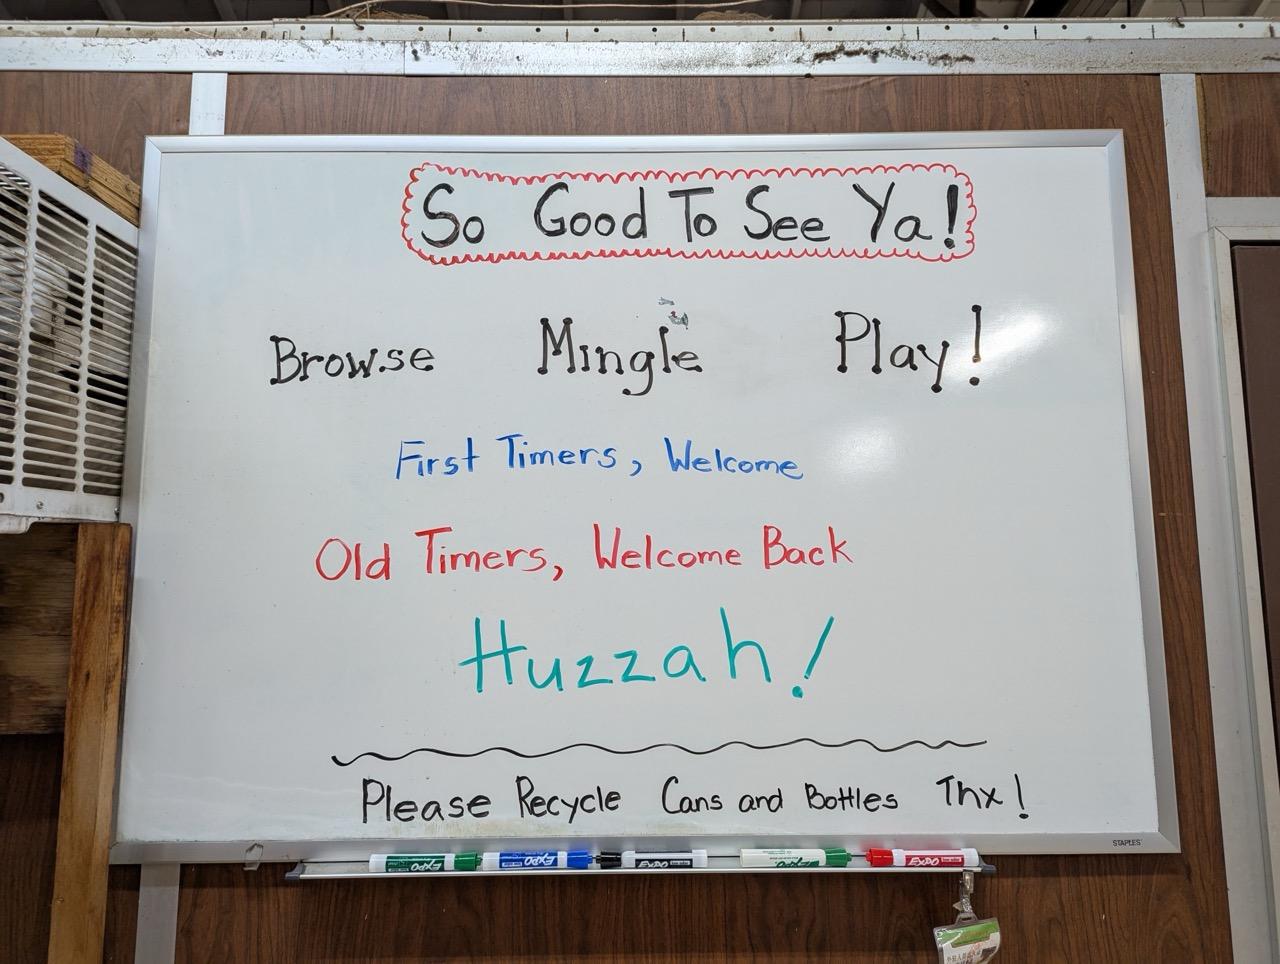 So Good To See Ya!
Browse Mingle Play!
First Timers, Welcome
Old Timers, Welcome Back
Huzzah!
Please Recycle Cans and Bottles Thx!
STAPLES
EXPO EXPO EXPO EXPO EXPO